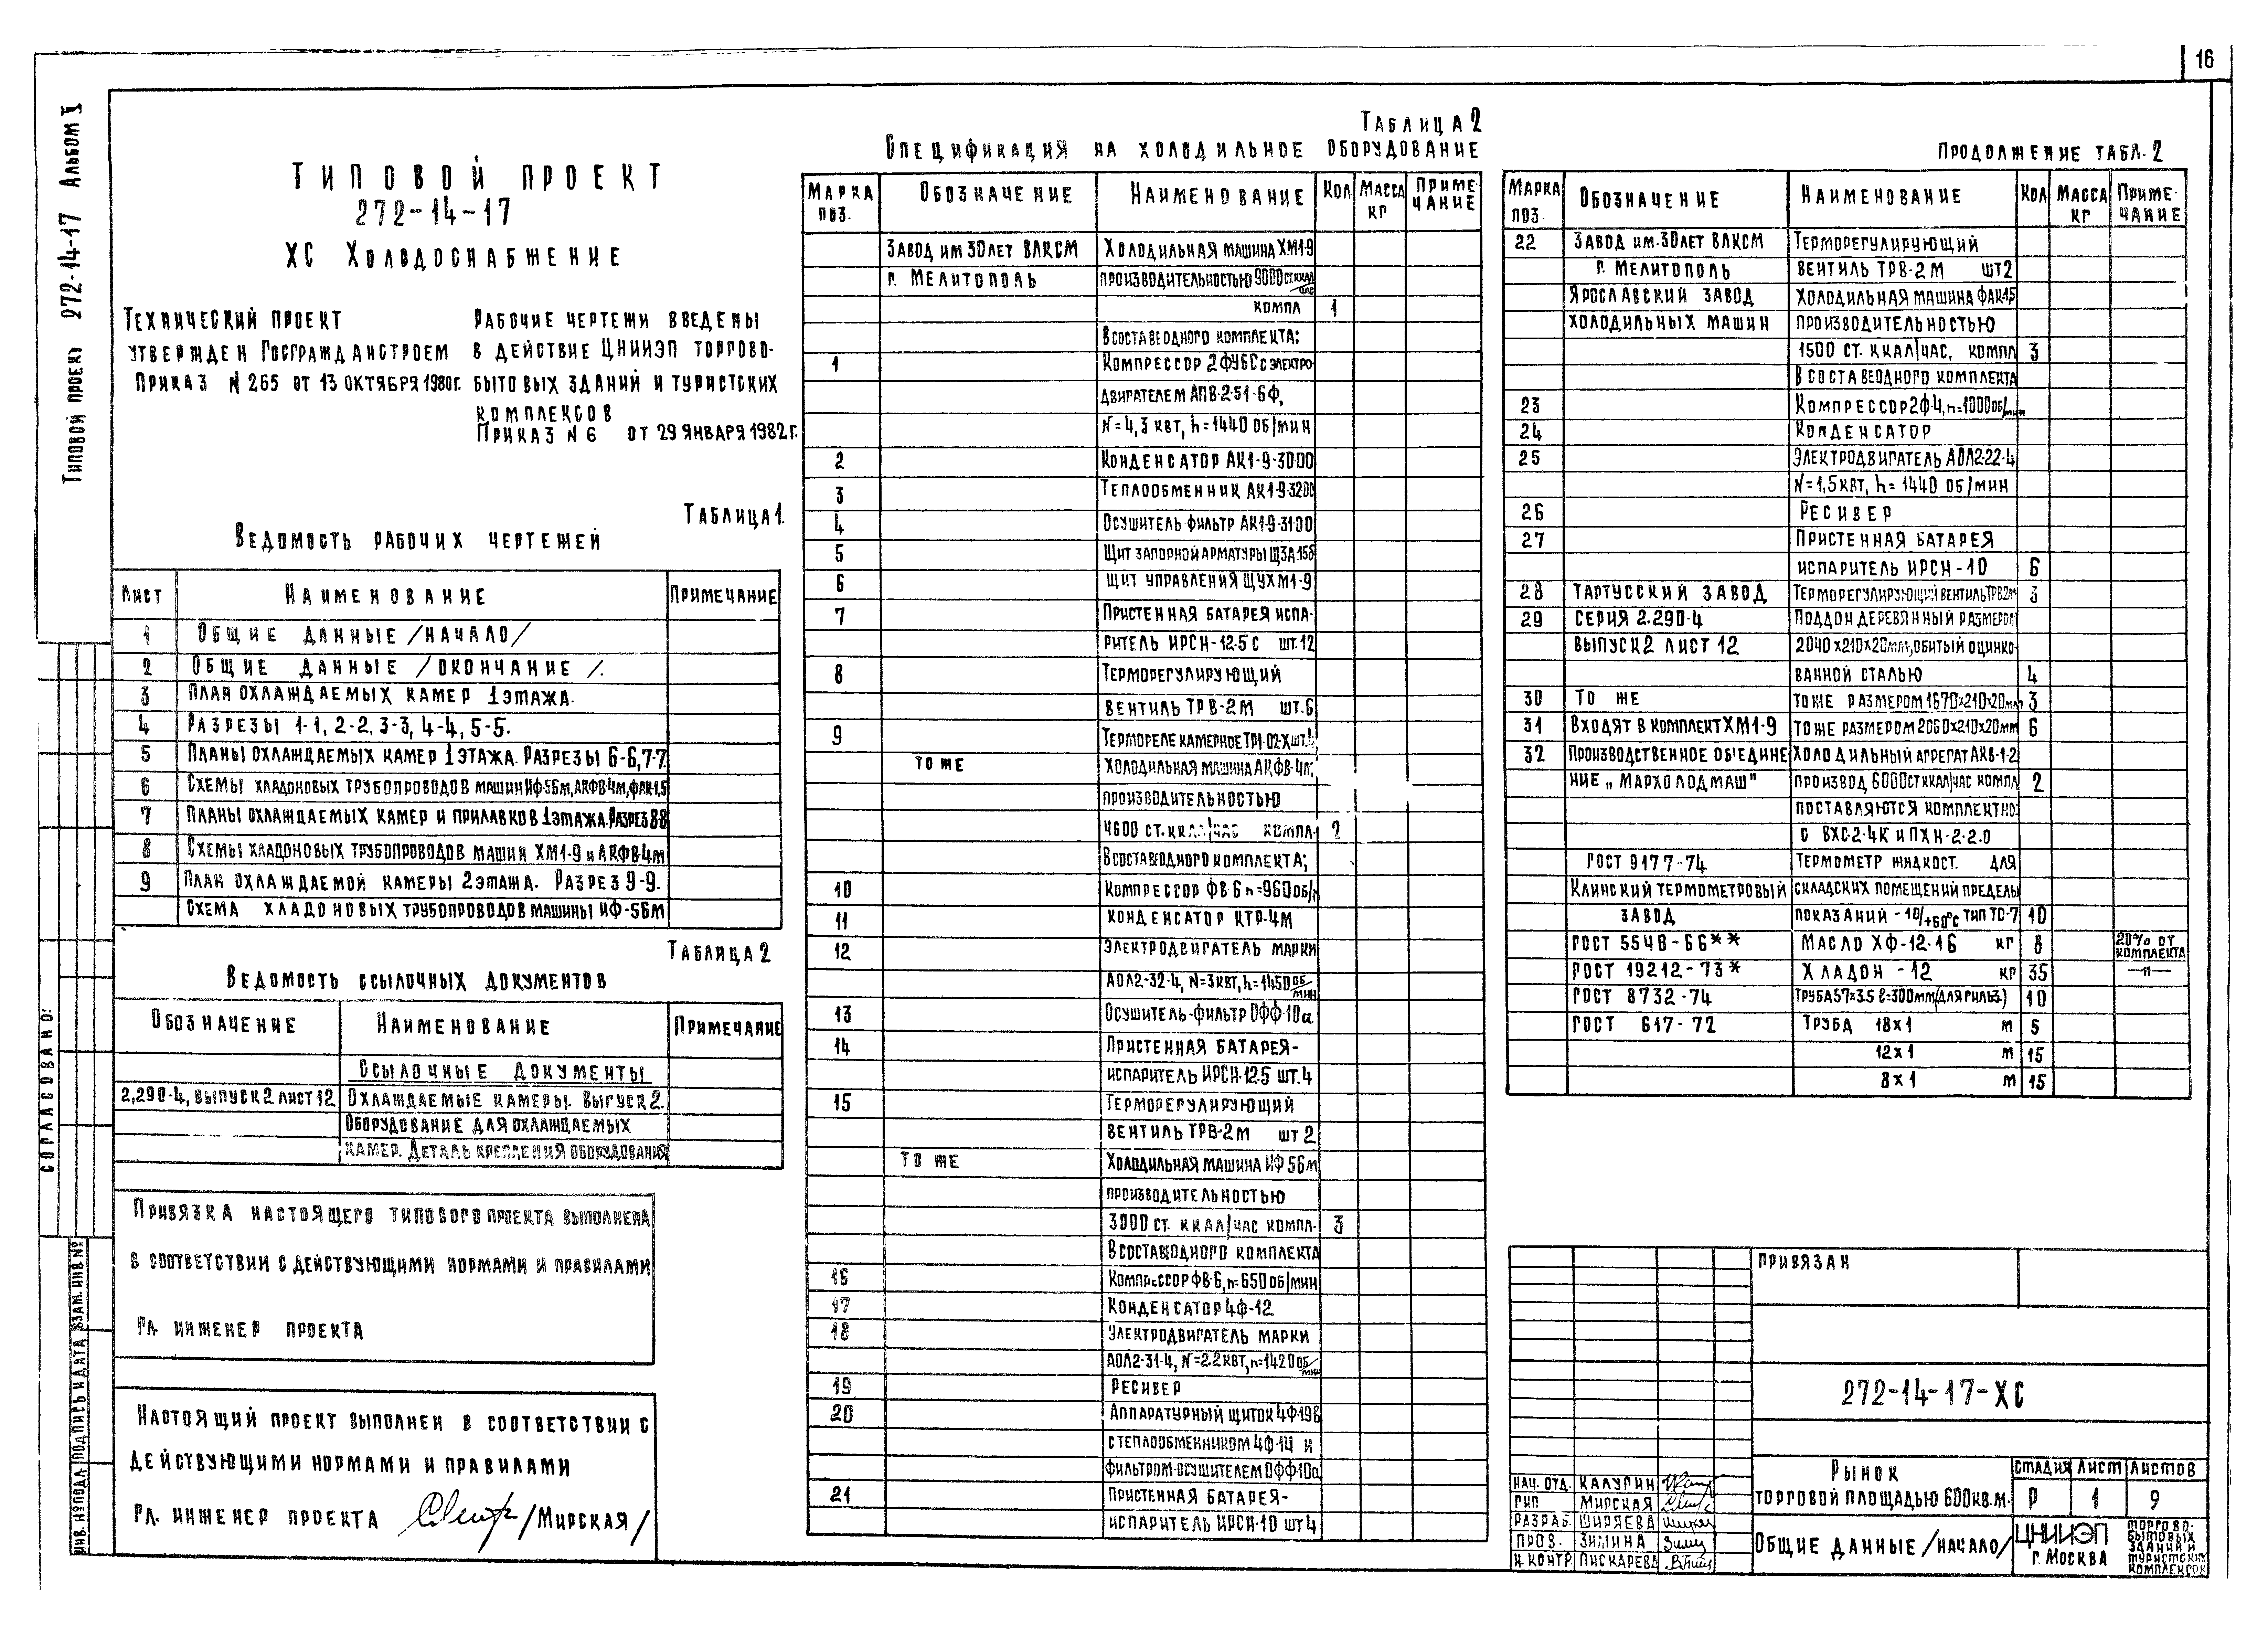 16
Типовой проект 272-14-17 Альбом V
Типовой проект
272-14-17
ХС Холодоснабжение
Технический проект
утвержден Госгражданстроем
Приказ N 265 от 13 октября 1980г.
Рабочие чертежи введены
в действие ЦНИИЭП торгово-
бытовых зданий и туристских
комплексов
Приказ N 6 от 29 января 1982г.
Таблица 1.
Ведомость рабочих чертежей
Лист Наименование Примечание
1 Общие данные /начало/
2 Общие данные /окончание/.
3 План охлаждаемых камер 1 этажа.
4 Разрезы 1-1, 2-2, 3-3, 4-4, 5-5.
5 Планы охлаждаемых камер 1 этажа. Разрезы 6-6, 7-7.
6 Схемы хладоновых трубопроводов машин ИФ-56м, АКФВ-4м, ФАК-1,5
7 Планы охлаждаемых камер и прилавков 1 этажа. Разрез 8-8
8 Схемы хладоновых трубопроводов машин ХМ1-9 и АКФВ-4м
9 План охлаждаемой камеры 2 этажа. Разрез 9-9.
Схема хладоновых трубопроводов машины ИФ-56м
Таблица 2
Ведомость ссылочных документов
Обозначение Наименование Примечание
Ссылочные документы
2.290-4, выпуск 2 лист 12 Охлаждаемые камеры. Выпуск 2.
Оборудование для охлаждаемых
камер. Деталь крепления оборудования
Привязка настоящего типового проекта выполнена
в соответствии с действующими нормами и правилами
Гл. инженер проекта
Настоящий проект выполнен в соответствии с
действующими нормами и правилами
Гл. инженер проекта /Мирская/
Согласовано:
Инв. № подл. Подпись и дата Взам. инв №
Таблица 2
Спецификация на холодильное оборудование
Марка поз. Обозначение Наименование Кол Масса кг Примечание
Завод им 30 лет ВЛКСМ Холодильная машина ХМ1-9
г. Мелитополь производительностью 9000 ст ккал/час
компл 1
В состав водного комплекта:
1 Компрессор 2ФУБС с электро-
двигателем АПВ-2-51-6Ф,
N=4,3 квт, n=1440 об/мин
2 Конденсатор АК1-9-3000
3 Теплообменник АК1-9-3200
4 Осушитель-фильтр АК1-9-3100
5 Щит запорной арматуры ЩЗА-15б
6 Щит управления ЩУХМ1-9
7 Пристенная батарея испа-
ритель ИРСН-12.5 С шт. 12
8 Терморегулирующий
вентиль ТРВ-2М шт. 6
9 Термореле камерное ТР1-02-Х шт. 4
То же Холодильная машина АКФВ-4м,
производительностью
4600 ст. ккал/час компл. 2
В состав водного комплекта;
10 Компрессор ФВ-6 n=960 об/м
11 Конденсатор КТР-4М
12 Электродвигатель марки
АОЛ2-32-4, N=3квт, n=1450 об/мин
13 Осушитель-фильтр ОФФ-10а
14 Пристенная батарея-
испаритель ИРСН-12.5 шт. 4
15 Терморегулирующий
вентиль ТРВ-2М шт 2
То же Холодильная машина ИФ 56м
производительностью
3000 ст. ккал/час компл. 3
В состав водного комплекта
16 Компрессор ФВ-6, n=650 об/мин
17 Конденсатор 4Ф-12
18 Электродвигатель марки
АОЛ2-31-4, N=2.2квт, n=1420 об/мин
19 Ресивер
20 Аппаратурный щиток 4Ф-19б
с теплообменником 4Ф-14 и
фильтром-осушителем ОФФ-10а
21 Пристенная батарея-
испаритель ИРСН-10 шт 4
Продолжение табл. 2
Марка поз. Обозначение Наименование Кол Масса кг Примечание
22 Завод им. 30 лет ВЛКСМ Терморегулирующий
г. Мелитополь вентиль ТРВ-2М шт 2
Ярославский завод Холодильная машина ФАК-1,5
холодильных машин производительностью
1500 ст. ккал/час, компл 3
В состав водного комплекта
23 Компрессор 2Ф-4, n=1000 об/мин
24 Конденсатор
25 Электродвигатель АОЛ2-22-4
N=1,5квт, n=1440 об/мин
26 Ресивер
27 Пристенная батарея
испаритель ИРСН-10 6
28 Тартусский завод Терморегулирующий вентиль ТРВ2м 3
29 Серия 2.290-4 Поддон деревянный размером
выпуск 2 лист 12 2040х210х20мм, обитый оцинко-
ванной сталью 4
30 То же То же размером 1670х210х20мм 3
31 Входят в комплект ХМ1-9 То же размером 2060х210х20мм 6
32 Производственное объедине- Холодильный агрегат АКВ-1-2
ние „Мархолодмаш" производ 6000 ст ккал/час компл 2
поставляются комплектно
с ВХС-2-4К и ПХН-2-2.0
ГОСТ 9177-74 Термометр жидкост. для
Клинский термометровый складских помещений пределы
завод показаний -10/+60°С тип ТС-7 10
ГОСТ 5546-66** Масло ХФ-12-16 кг 8 20% от комплекта
ГОСТ 19212-73* Хладон -12 кг 35 —"—
ГОСТ 8732-74 Труба 57х3.5 l=300мм (для гильз.) 10
ГОСТ 617-72 Труба 18х1 м 5
12х1 м 15
8х1 м 15
Привязан
272-14-17-ХС
Нач. отд. Калугин
ГИП Мирская
Разраб. Ширяева
Пров. Зимина
Н. контр. Пискарева
Рынок
торговой площадью 600 кв.м.
Стадия Лист Листов
Р 1 9
Общие данные /начало/
ЦНИИЭП
г. Москва
торгово-
бытовых
зданий и
туристских
комплексов